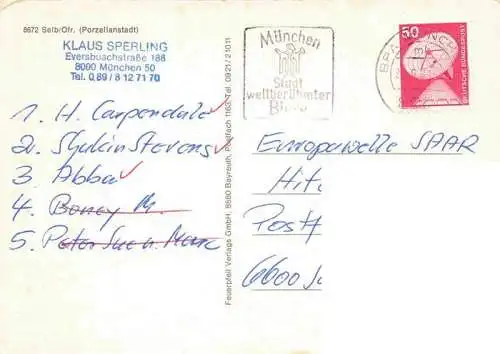 8672 Selb/Ofr. (Porzellanstadt)
KLAUS SPERLING
Eversbuschstraße 186
8000 München 50
Tel. 0,89 / 8 12 71 70
1. H. Carpendale
2. Shakin Stevens
3. Abba
4. Boney M.
5. Peter Sue u. Marc
Feuerpfeil Verlags GmbH, 8580 Bayreuth, Postfach 1163, Tel. 0921/21011
München
Stadt
weltberühmter
50
DEUTSCHE BUNDESPOST
Europawelle SAAR
Hit
Post
6600